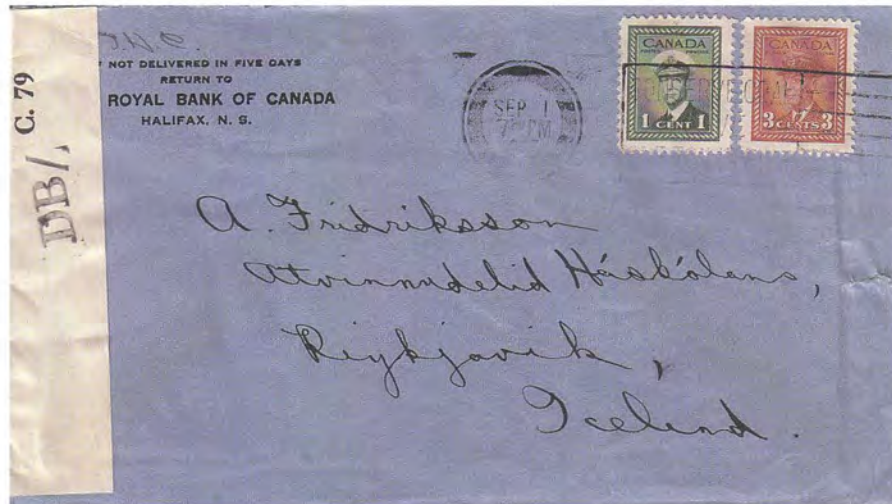 C. 79
DB/.
T.H.C.
NOT DELIVERED IN FIVE DAYS
RETURN TO
ROYAL BANK OF CANADA
HALIFAX, N. S.
SEP 1
PM
CANADA
1 CENT 1
CANADA
3 CENTS 3
A. Fridriksson
Atvinnudelid Háskólans,
Riykjavik,
Iceland.